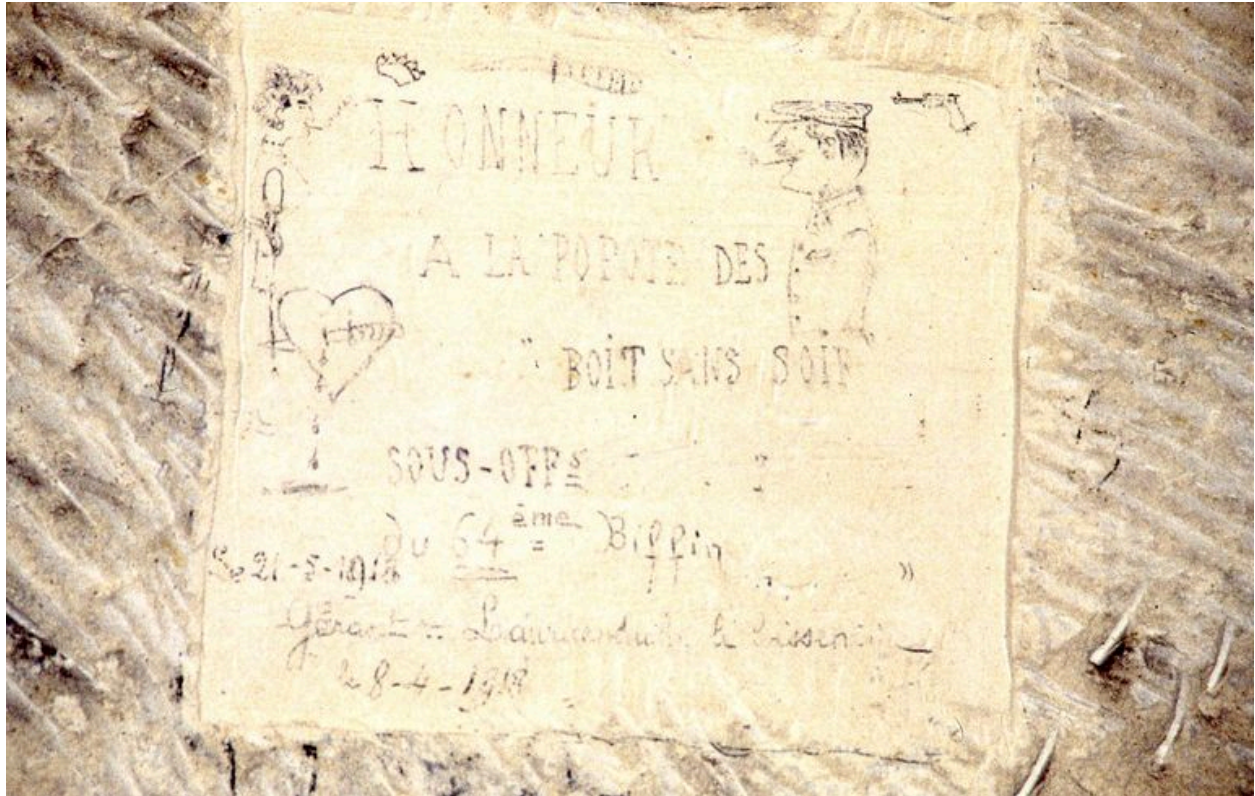 HONNEUR
A LA POPOTE DES
"BOIT SANS SOIF"
SOUS-OFFS
DU 64ème Biffin
Le 21-5-1918
Gérant
28-4-1918